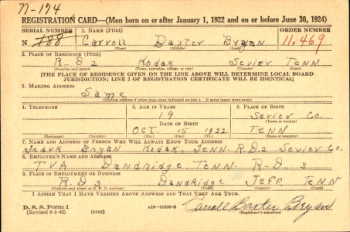 N-174
REGISTRATION CARD—(Men born on or after January 1, 1922 and on or before June 30, 1924)
SERIAL NUMBER 1. NAME (Print) ORDER NUMBER
N 188 Carroll Baxter Bryan 11,469
2. PLACE OF RESIDENCE (Print)
R.D. 2 Kodak Sevier Tenn
(THE PLACE OF RESIDENCE GIVEN ON THE LINE ABOVE WILL DETERMINE LOCAL BOARD
JURISDICTION; LINE 2 OF REGISTRATION CERTIFICATE WILL BE IDENTICAL)
3. MAILING ADDRESS
Same
4. TELEPHONE 5. AGE IN YEARS 6. PLACE OF BIRTH
19 Sevier Co.
DATE OF BIRTH
Oct 15 1922 Tenn
7. NAME AND ADDRESS OF PERSON WHO WILL ALWAYS KNOW YOUR ADDRESS
Bryan Kodak Tenn. R.D. 2 Sevier Co
8. EMPLOYER'S NAME AND ADDRESS
TVA Dandridge Tenn. R.D. 2
9. PLACE OF EMPLOYMENT OR BUSINESS
R.D. 2 Dandridge Jeff Tenn
I AFFIRM THAT I HAVE VERIFIED ABOVE ANSWERS AND THAT THEY ARE TRUE.
D. S. S. Form 1
Carroll Baxter Bryan